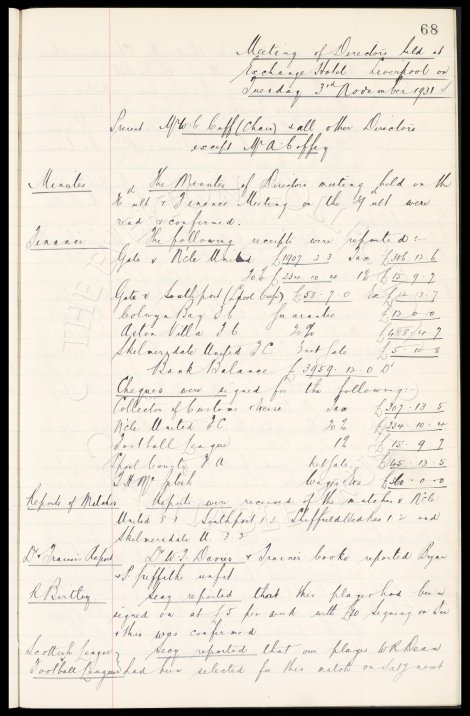 68
Meeting of Directors held at
Exchange Hotel Liverpool on
Tuesday 3rd November 1931
Present Mr W C Cuff (Chair) & all other Directors
except Mr A Coffey
Minutes The Minutes of Directors meeting held on the
ult & Finance Meeting on the ult were
read & confirmed.
Finance The following receipts were reported :-
Gate v Nile United £1907 2 3 Tax £306 12 6
20% £234 . 10 . 4 1% £15 . 9 . 7
Gate v Southport (Lpool Cup) £58 . 7 . 0 Tax £12 . 13 . 7
Colwyn Bay F C Guarantee £12 . 0 . 0
Aston Villa F C 20% £488 . 14 . 7
Skelmersdale United F C Gate £5 . 10 . 8
Bank Balance £3959 . 12 . 0
Cheques were signed for the following :-
Collector of Customs & Excise Tax £307 . 13 . 5
Nile United F C 20% £234 . 10 . 4
Football League 1% £15 . 9 . 7
Lpool County F A Net Gate £45 . 13 . 5
Wages £360 . 0 . 0
Reports of Matches Reports were received of the matches v Nile
United 8.1 Southport 1.3 Sheffield Wed Res 1.2 and
Skelmersdale U. 3.3
Dr & Trainers Report Dr W J Davies & Trainer Cooke reported Bryan
& P Griffiths unfit
R Birtley Secy reported that this player had been
signed on at £5 per week with £10 signing on fee
& this was confirmed
Scottish League v Secy reported that our player W R Dean
Football League had been selected for this match on Satdy next